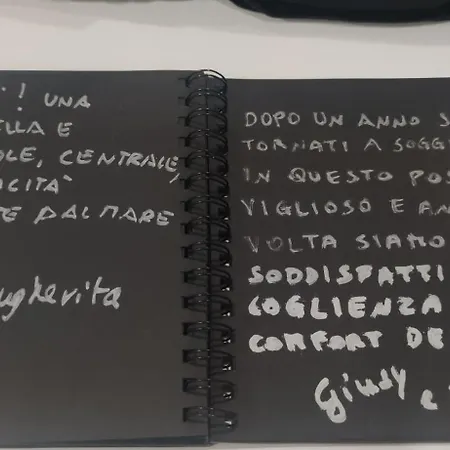 ! UNA
ELLA E
OLE, CENTRALE,
ICITÀ
TE DAL MARE
ugherita
DOPO UN ANNO S
TORNATI A SOGG
IN QUESTO POS
VIGLIOSO E AN
VOLTA SIAMO
SODDISFATTI
COGLIENZA
CONFORT DE
Giusy e